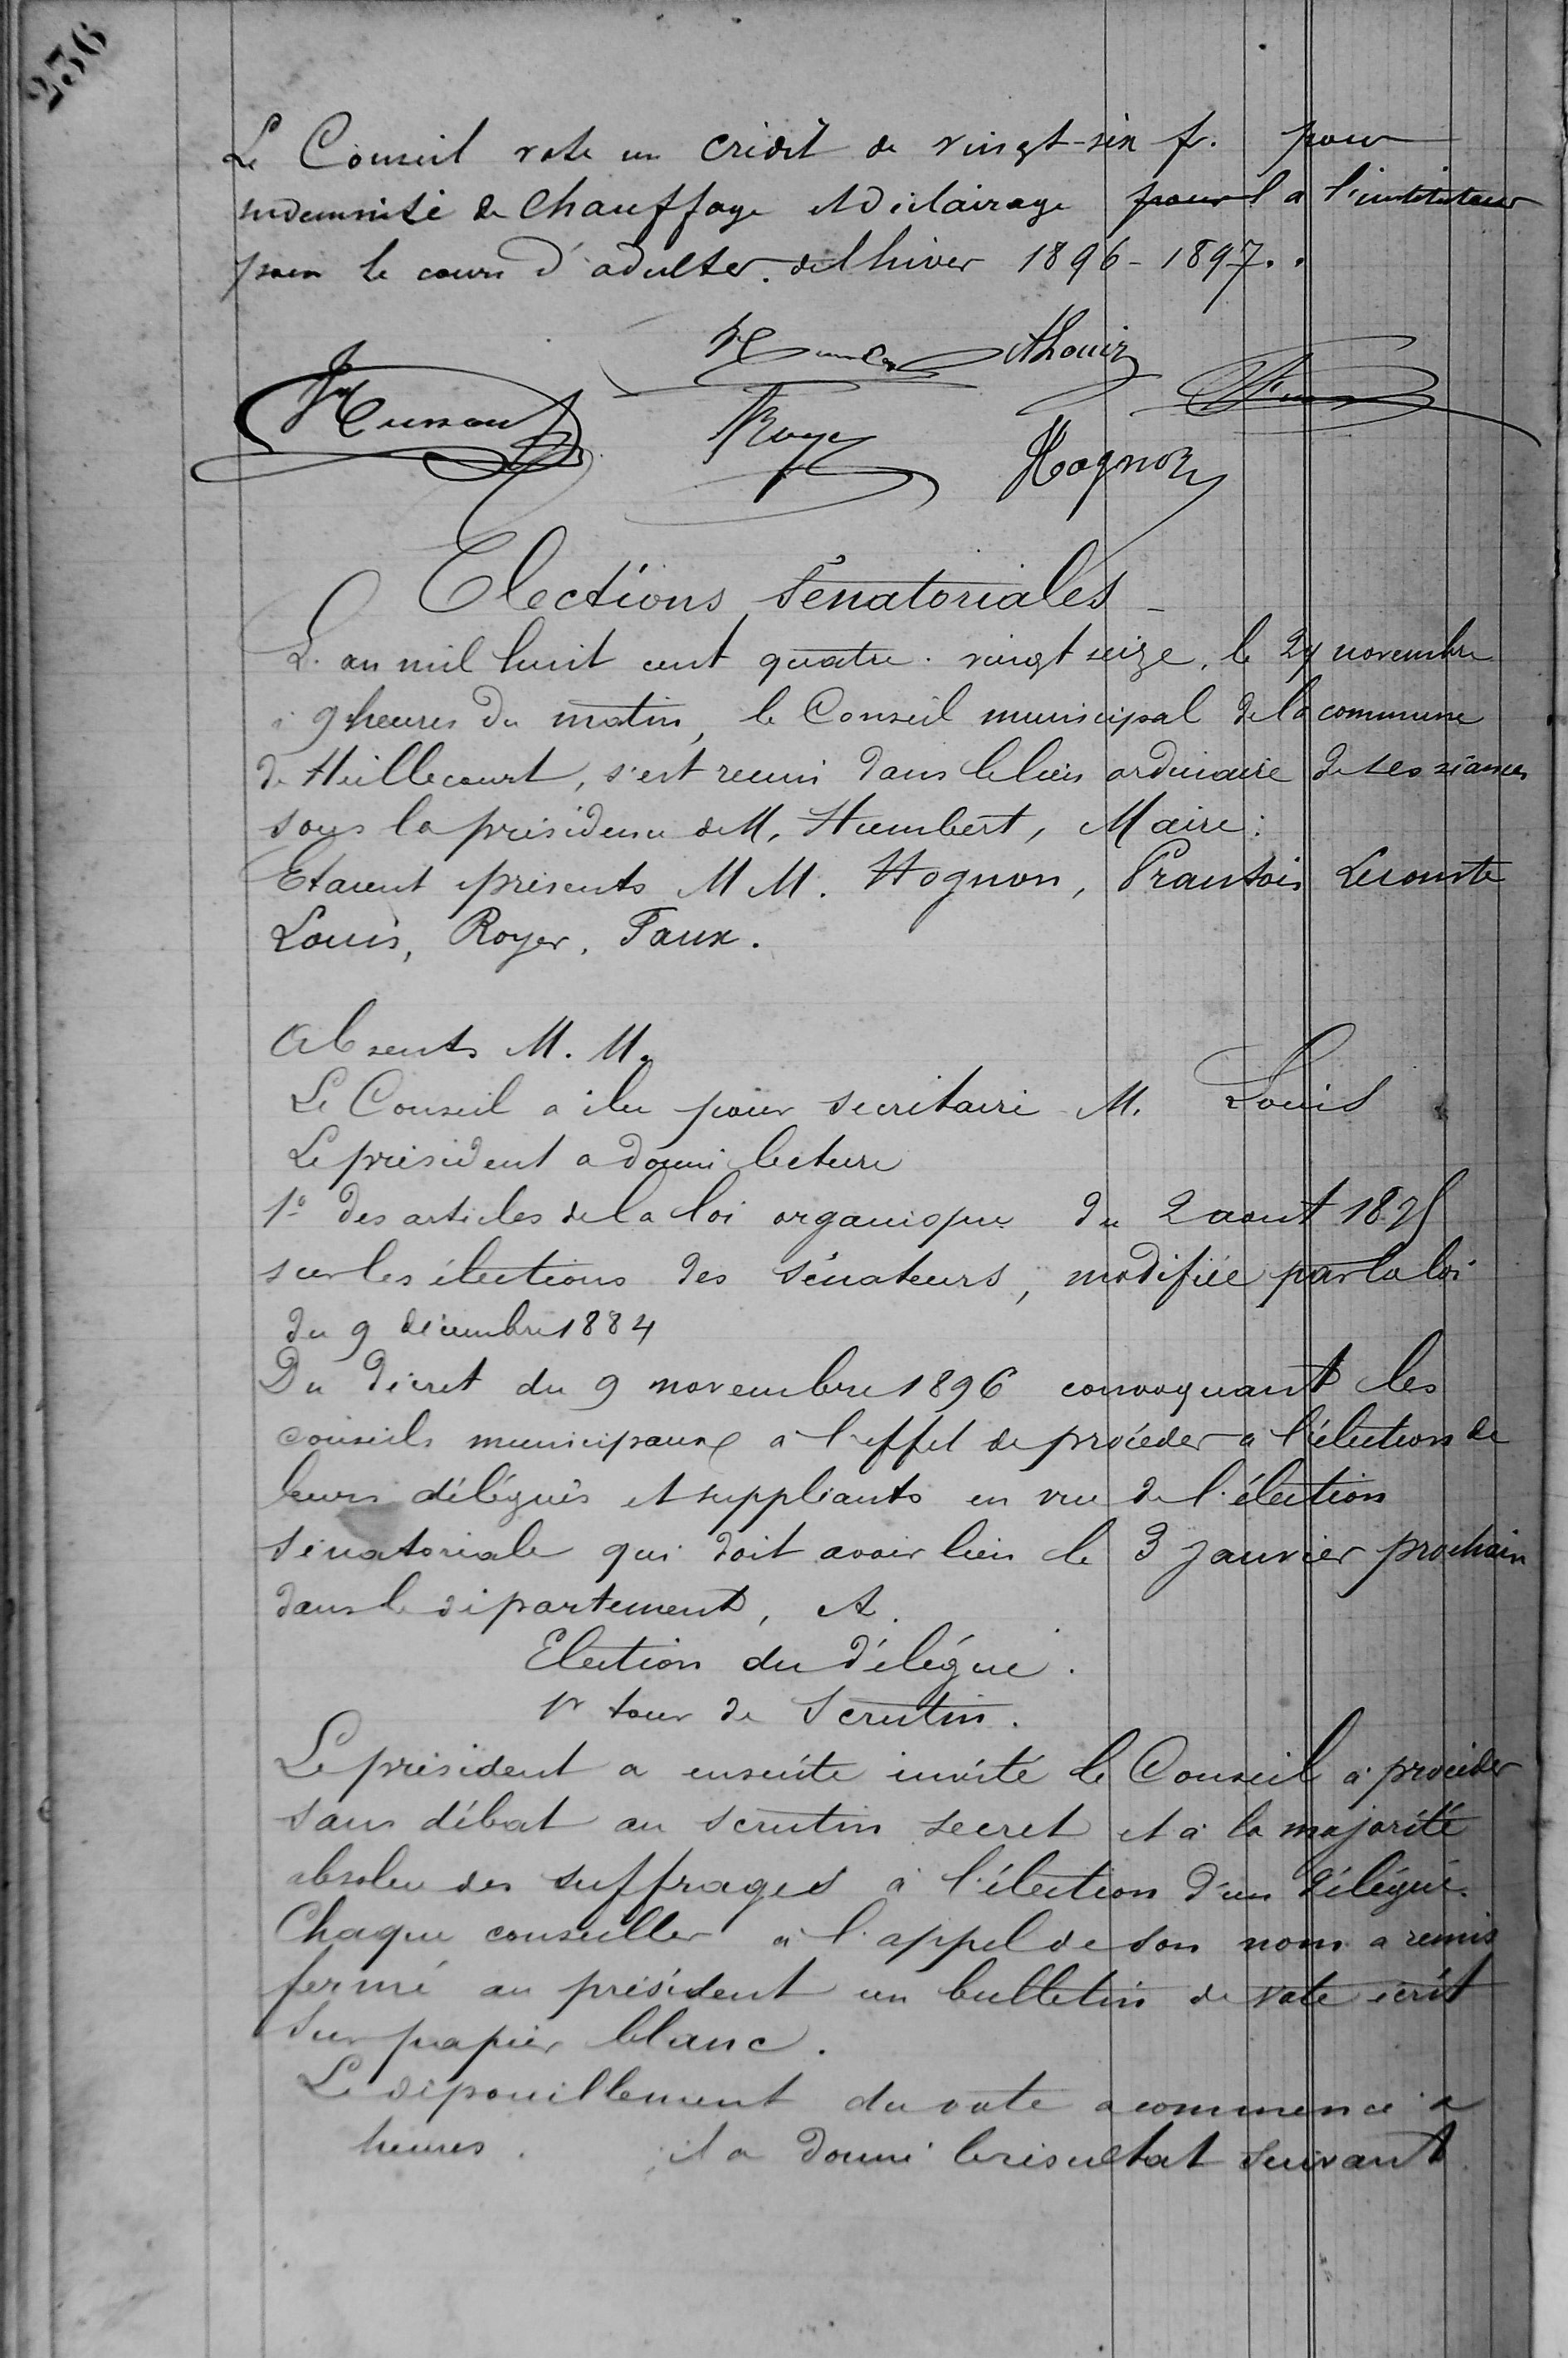 236
Le Conseil vote un crédit de vingt-six fr. pour
indemnité de chauffage et d'éclairage pour l a l'instituteur
pour le cours d'adultes. de l'hiver 1896-1897..
Thouin
Royer
Hognon
Elections Sénatoriales
L'an mil huit cent quatre-vingt seize, le 29 novembre
à 9 heures du matin, le Conseil municipal de la commune
de Heillecourt, s'est réuni dans le lieu ordinaire de ses séances
sous la présidence de M. Humbert, Maire:
Etaient présents M M. Hognon, François Lecomte
Louis, Royer, Faux.
Absents M. M.
Le Conseil a élu pour secrétaire M. Louis
Le président a donné lecture
1° des articles de la loi organique du 2 aout 1875
sur les élections des sénateurs, modifiée par la loi
du 9 décembre 1884
Du décret du 9 novembre 1896 convoquant les
conseils municipaux a l'effet de procéder a l'élection de
leurs délégués et suppléants en vue de l'élection
sénatoriale qui doit avoir lieu le 3 Janvier prochain
dans le département, et.
Election du délégué.
1r tour de Scrutin.
Le président a ensuite invité le Conseil à procéder
sans débat au scrutin secret et à la majorité
absolue des suffrages à l'élection d'un délégué.
Chaque conseiller à l'appel de son nom a remis
fermé au président un bulletin de vote écrit
sur papier blanc.
Le dépouillement du vote a commencé a
heures. il a donné le résultat suivant